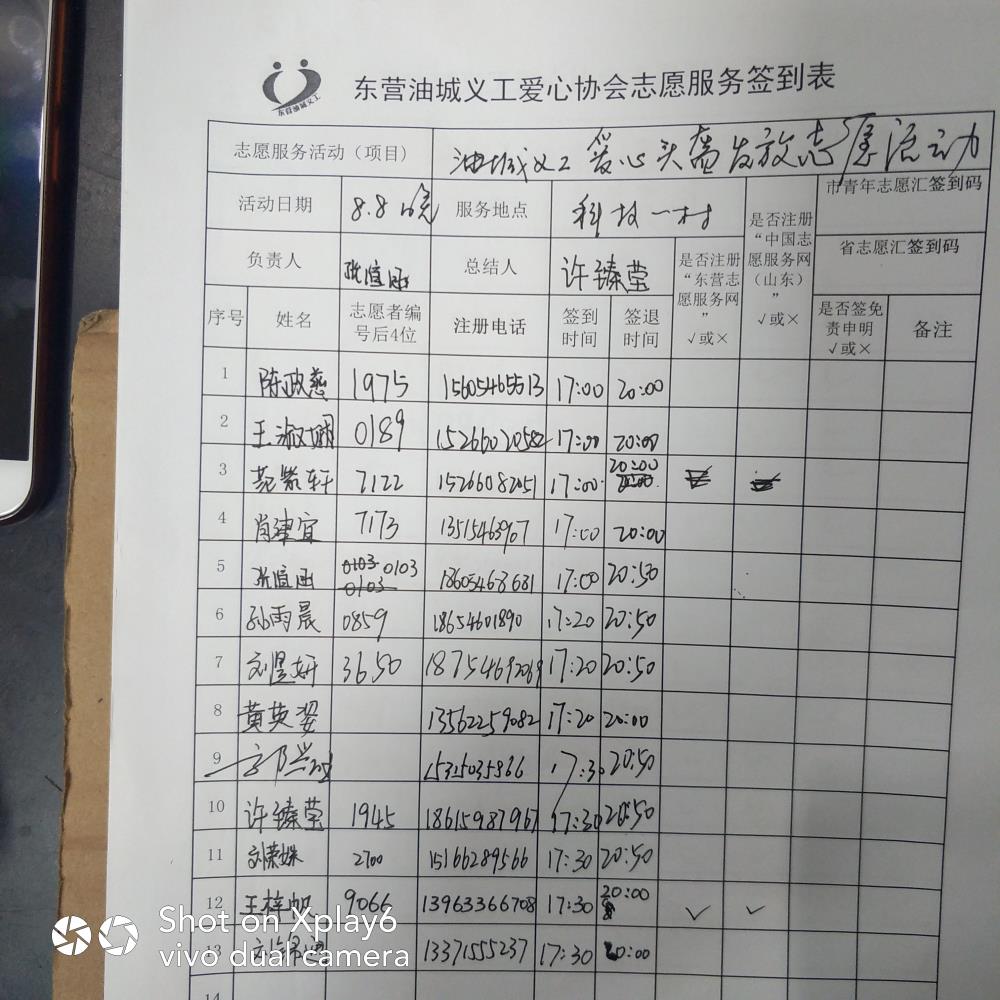 东营油城义工
东营油城义工爱心协会志愿服务签到表
志愿服务活动（项目） 油城义工爱心头盔发放志愿活动
活动日期 8.8晚 服务地点 科技一村
是否注册“中国志愿服务网（山东）” √或×
市青年志愿汇签到码
负责人 总结人 许臻莹
是否注册“东营志愿服务网” √或×
省志愿汇签到码
序号 姓名 志愿者编号后4位 注册电话 签到时间 签退时间 是否签免责申明 √或× 备注
1 陈政慈 1975 15605465513 17:00 20:00
2 王淑娴 0189 15266020582 17:00 20:00
3 范紫轩 7122 15266082051 17:00 20:00
4 肖津宜 7173 13515463967 17:00 20:00
5 0103 18605468681 17:00 20:50
6 孙雨晨 0859 18654601890 17:20 20:50
7 刘昱妍 3650 18754692069 17:20 20:50
8 黄英姿 13562259082 17:20 20:00
9 17:30 20:50
10 许臻莹 1945 18615987967 17:30 20:50
11 2700 15166289566 17:30 20:50
12 王梓帆 9066 13963366708 17:30 20:00 √ √
13 13371555237 17:30 20:00
14
Shot on Xplay6
vivo dual camera